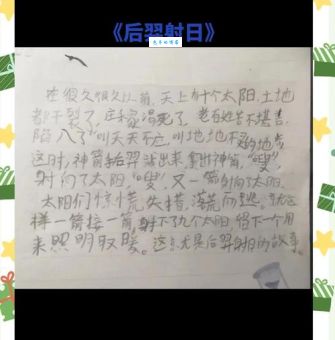 《后羿射日》
在很久很久以前，天上有十个太阳，土地
都干裂了，庄稼渴死了，老百姓苦不堪言，
陷入了叫天天不应，叫地地不灵的地步
这时，神箭后羿站出来，拿出神箭，“嗖”
射向了太阳，“嗖”，又一箭射向了太阳，
太阳们惊慌失措，落荒而逃。就这
样一箭接一箭，射下了九个太阳，留下一个用
来照明取暖。这就是后羿射日的故事。